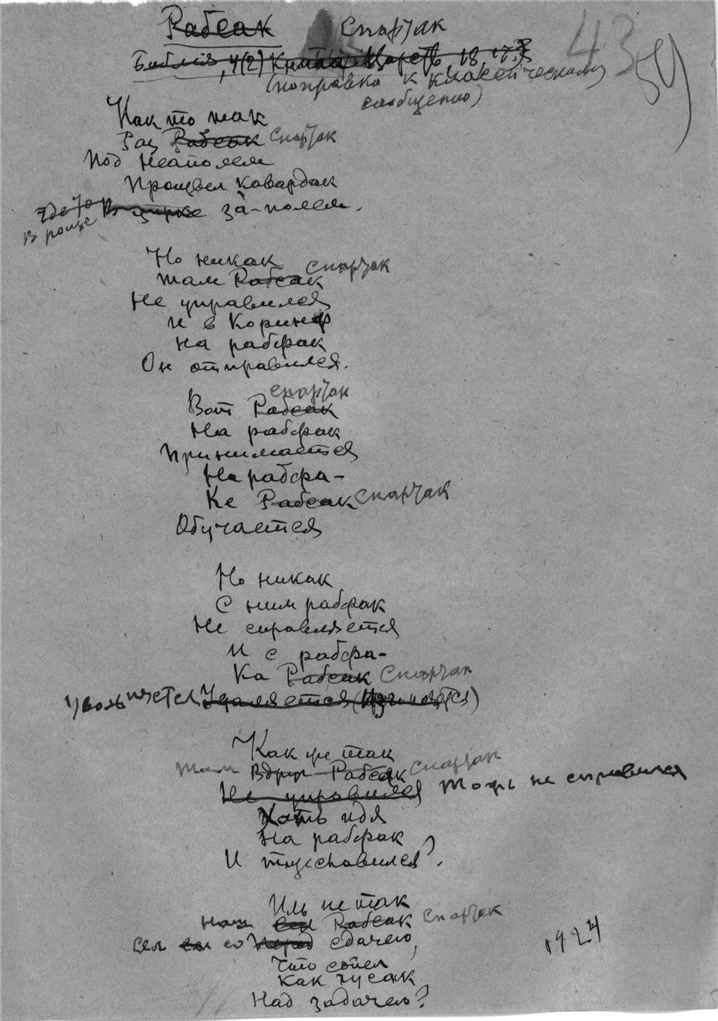 Рабсак Спартак
Библия, 4(2) Книга Царств, 18, 17.
43
59
(поправка к классическому
сообщению)
Как то так
Раз Рабсак Спартак
Под Неаполем
Процвел кавардак
где-то
В роще В цирке за́-полем.
Но никак
там Рабсак Спартак
Не управился
И в Коринф
На рабфак
Он отправился.
Спартак
Вот Рабсак
На рабфак
Принимается
На рабфа-
Ке Рабсак Спартак
Обучается
Но никак
С ним рабфак
Не справляется
И с рабфа-
Ка Рабсак Спартак
увольняется Удаляется (Изгоняется)
Как же так
там Вдруг Рабсак Спартак
Не управился тож не справился
Хоть идя
На рабфак
И
Иль не так
Наш Рабсак Спартак
Сел со сдачею,
Что сопел
Как гусак
Над задачею?
1924